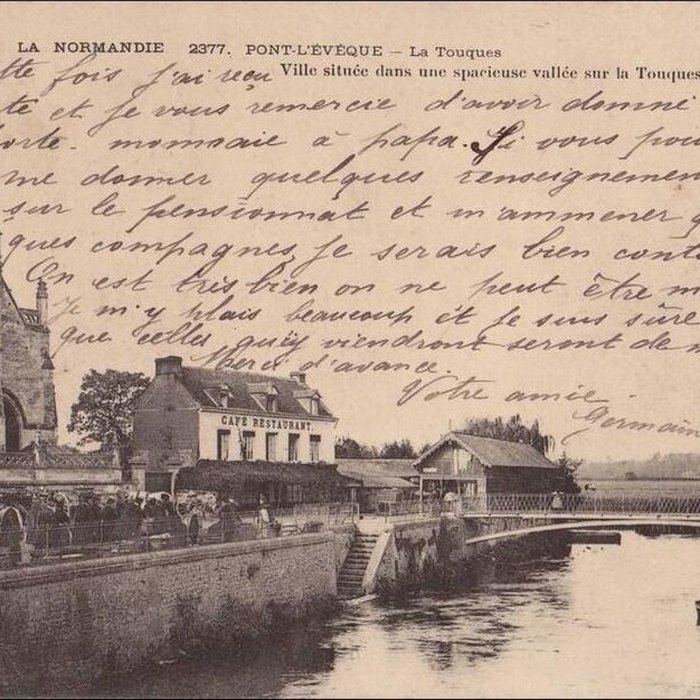 LA NORMANDIE 2377. PONT-L'ÉVÊQUE — La Touques
Ville située dans une spacieuse vallée sur la Touques
tte fois j'ai reçu
te et je vous remercie d'avoir donné
orte-monnaie à papa. Si vous pou
me donner quelques renseignemen
sur le pensionnat et m'ammener q
ques compagnes, je serais bien conte
On est très bien on ne peut être m
je m'y plais beaucoup et je suis sûre
que celles quÿ viendront seront de m
Merci d'avance.
Votre amie
Germain
CAFÉ RESTAURANT.